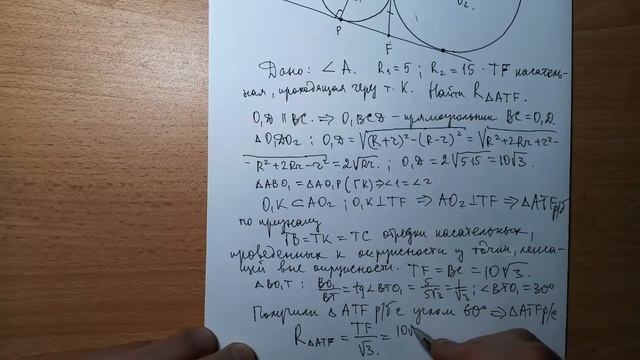 P
F
r₂
Дано: ∠A. R₁=5; R₂=15. TF касатель-
ная, проходящая через т. K. Найти R△ATF.
O₁D ∥ BC ⇒ O₁BCD – прямоугольник BC=O₁D.
△O₁DO₂; O₁D=√((R+r)²-(R-r)²)=√(R²+2Rr+r²-
-R²+2Rr-r²)=2√Rr; O₁D=2√5·15=10√3.
△ABO₁=△AO₁P (ГК)⇒∠1=∠2
O₁K⊂AO₂; O₁K⊥TF ⇒ AO₂⊥TF ⇒ △ATF р/б
по признаку
TB=TK=TC отрезки касательных,
проведенных к окружности из точки, лежа-
щей вне окружности. TF=BC=10√3.
△BO₁T: BO₁/BT=tg∠BTO₁=5/5√3=1/√3; ∠BTO₁=30°
Получили △ATF р/б с углом 60° ⇒ △ATF р/с.
R△ATF=TF/√3=10√